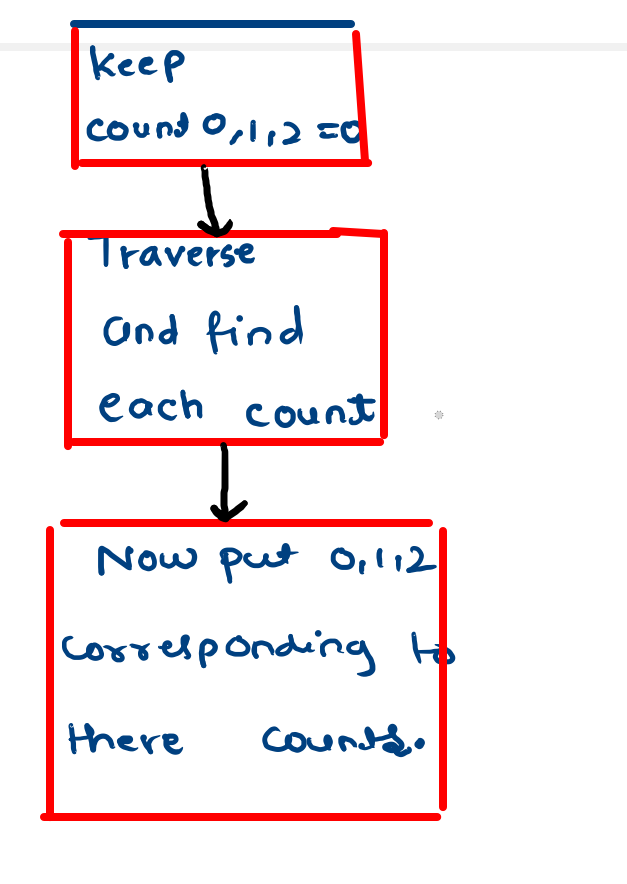 keep
count 0,1,2 =0
Traverse
and find
each count
Now put 0,1,2
corresponding to
there counts.